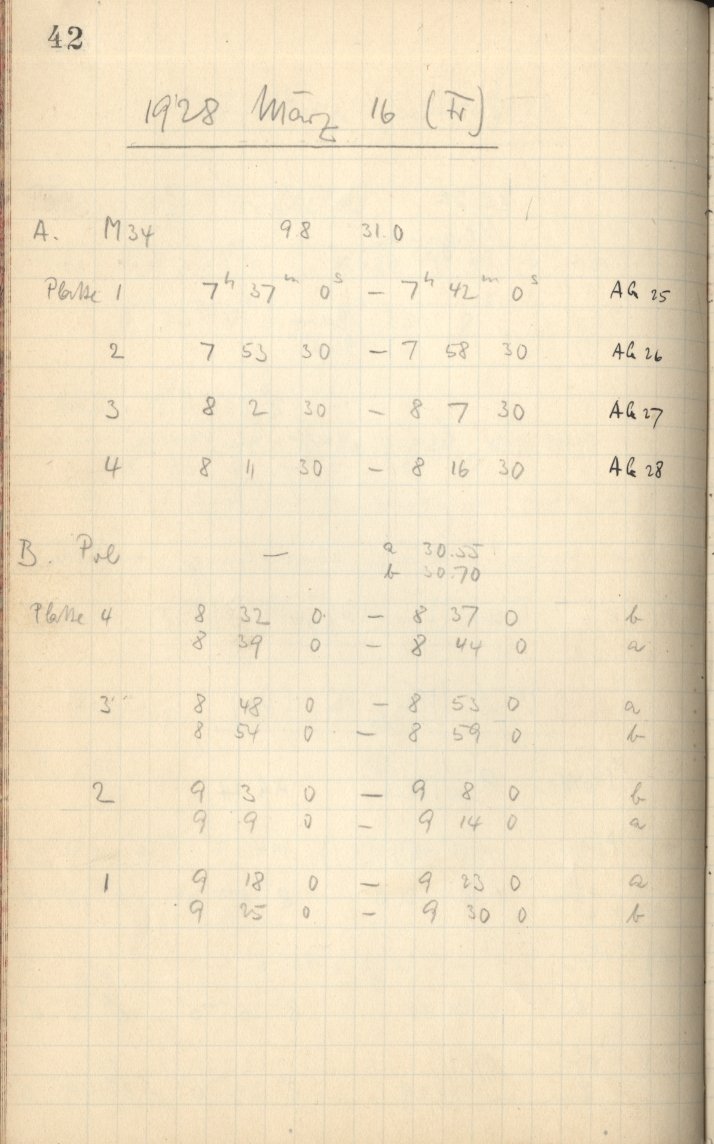 42
1928 März 16 (Fr)
A. M34 98 31.0
Platte 1 7h 37m 0s — 7h 42m 0s Ab 25
2 7 53 30 — 7 58 30 Ab 26
3 8 2 30 — 8 7 30 Ab 27
4 8 11 30 — 8 16 30 Ab 28
B. Pol — a 30.55
b 30.70
Platte 4 8 32 0 — 8 37 0 b
8 39 0 — 8 44 0 a
3 8 48 0 — 8 53 0 a
8 54 0 — 8 59 0 b
2 9 3 0 — 9 8 0 b
9 9 0 — 9 14 0 a
1 9 18 0 — 9 23 0 a
9 25 0 — 9 30 0 b